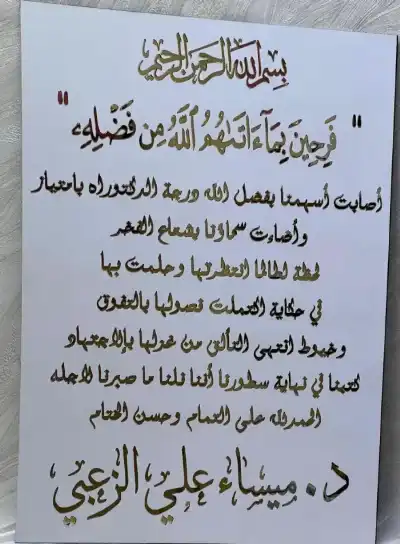 بسم الله الرحمن الرحيم
" فَرِحِينَ بِمَآ ءَاتَىٰهُمُ ٱللَّهُ مِن فَضْلِهِۦ "
أصابت أسهمنا بفضل الله درجة الدكتوراه بامتياز
وأضاءت سماؤنا بشعاع الفخر
لحظة لطالما انتظرتها وحلمت بها
في حكاية اكتملت فصولها بالتفوق
وخيوط انتهى التألق من غزلها بالاجتهاد
كتبنا في نهاية سطورنا أننا نلنا ما صبرنا لأجله
الحمدلله على التمام وحسن الختام
د. ميساء علي الزعبي